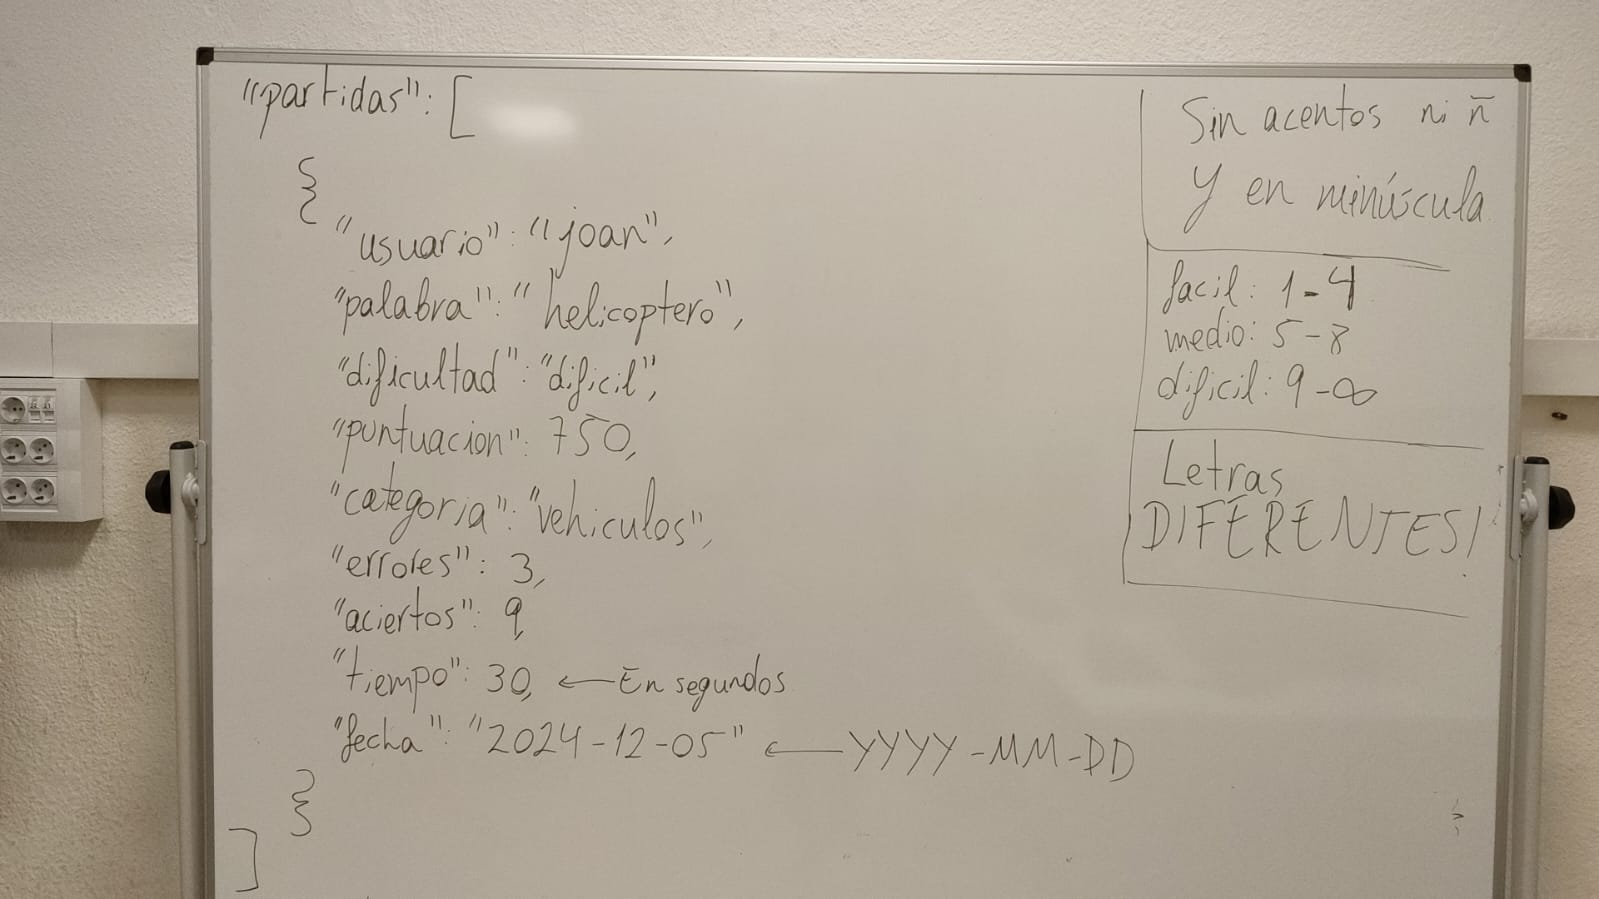 "partidas": [
{
"usuario": "joan",
"palabra": "helicoptero",
"dificultad": "dificil",
"puntuacion": 750,
"categoria": "vehiculos",
"errores": 3,
"aciertos": 9,
"tiempo": 30, ← En segundos
"fecha": "2024-12-05" ← YYYY-MM-DD
}
]
Sin acentos ni ñ
Y en minúscula
facil: 1-4
medio: 5-8
dificil: 9-∞
Letras
DIFERENTES!